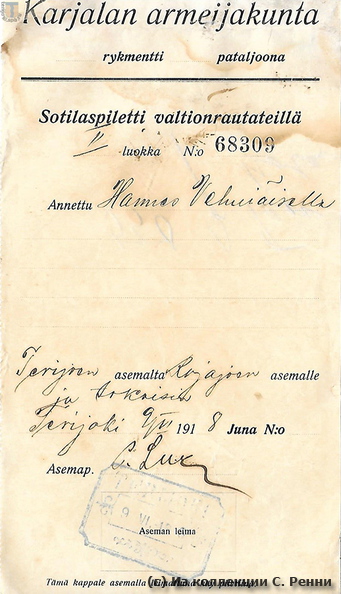 Karjalan armeijakunta
rykmentti pataljoona
Sotilaspiletti valtionrautateillä
II luokka N:o 68309
Annettu Hannes Vehviäiselle
Terijoen asemalta Rajajoen asemalle
ja takaisin
Terijoki 9/VI 1918 Juna N:o
Asemap. C. Lux
Aseman leima
Tämä kappale asemalla
(c) Из коллекции С. Ренни